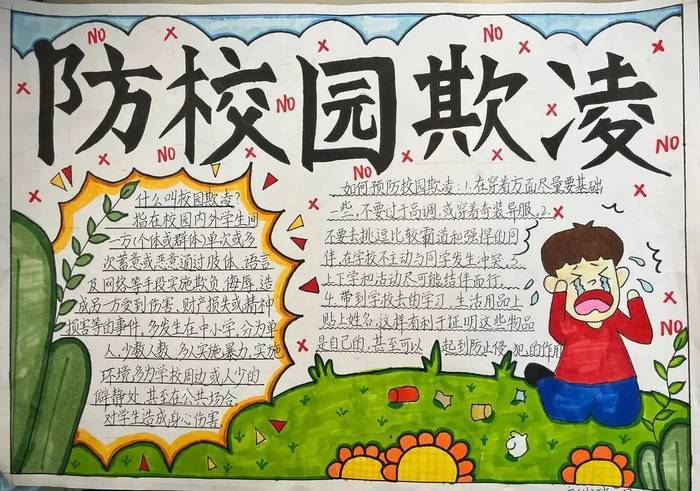 防校园欺凌
NO
NO
NO
NO
NO
NO
NO
什么叫校园欺凌?
指在校园内外学生间
一方(个体或群体)单次或多
次蓄意或恶意通过肢体、语言
及网络等手段实施欺负、侮辱,造
成另一方受到伤害、财产损失或精神
损害等的事件,多发生在中小学,分为单
人,少数人数,多人实施暴力,实施
环境多为学校周边或人少的
僻静处,甚至在公共场合,
对学生造成身心伤害。
如何预防校园欺凌:1.在穿着方面尽量要基础
一些,不要过于高调,或穿着奇装异服,2.
不要去挑逗比较霸道和强悍的同
伴,在学校不主动与同学发生冲突,3.
上下学和活动尽可能结伴而行。
4.带到学校去的学习、生活用品上
贴上姓名,这样有利于证明这些物品
是自己的,甚至可以 起到防止侵 犯的作用